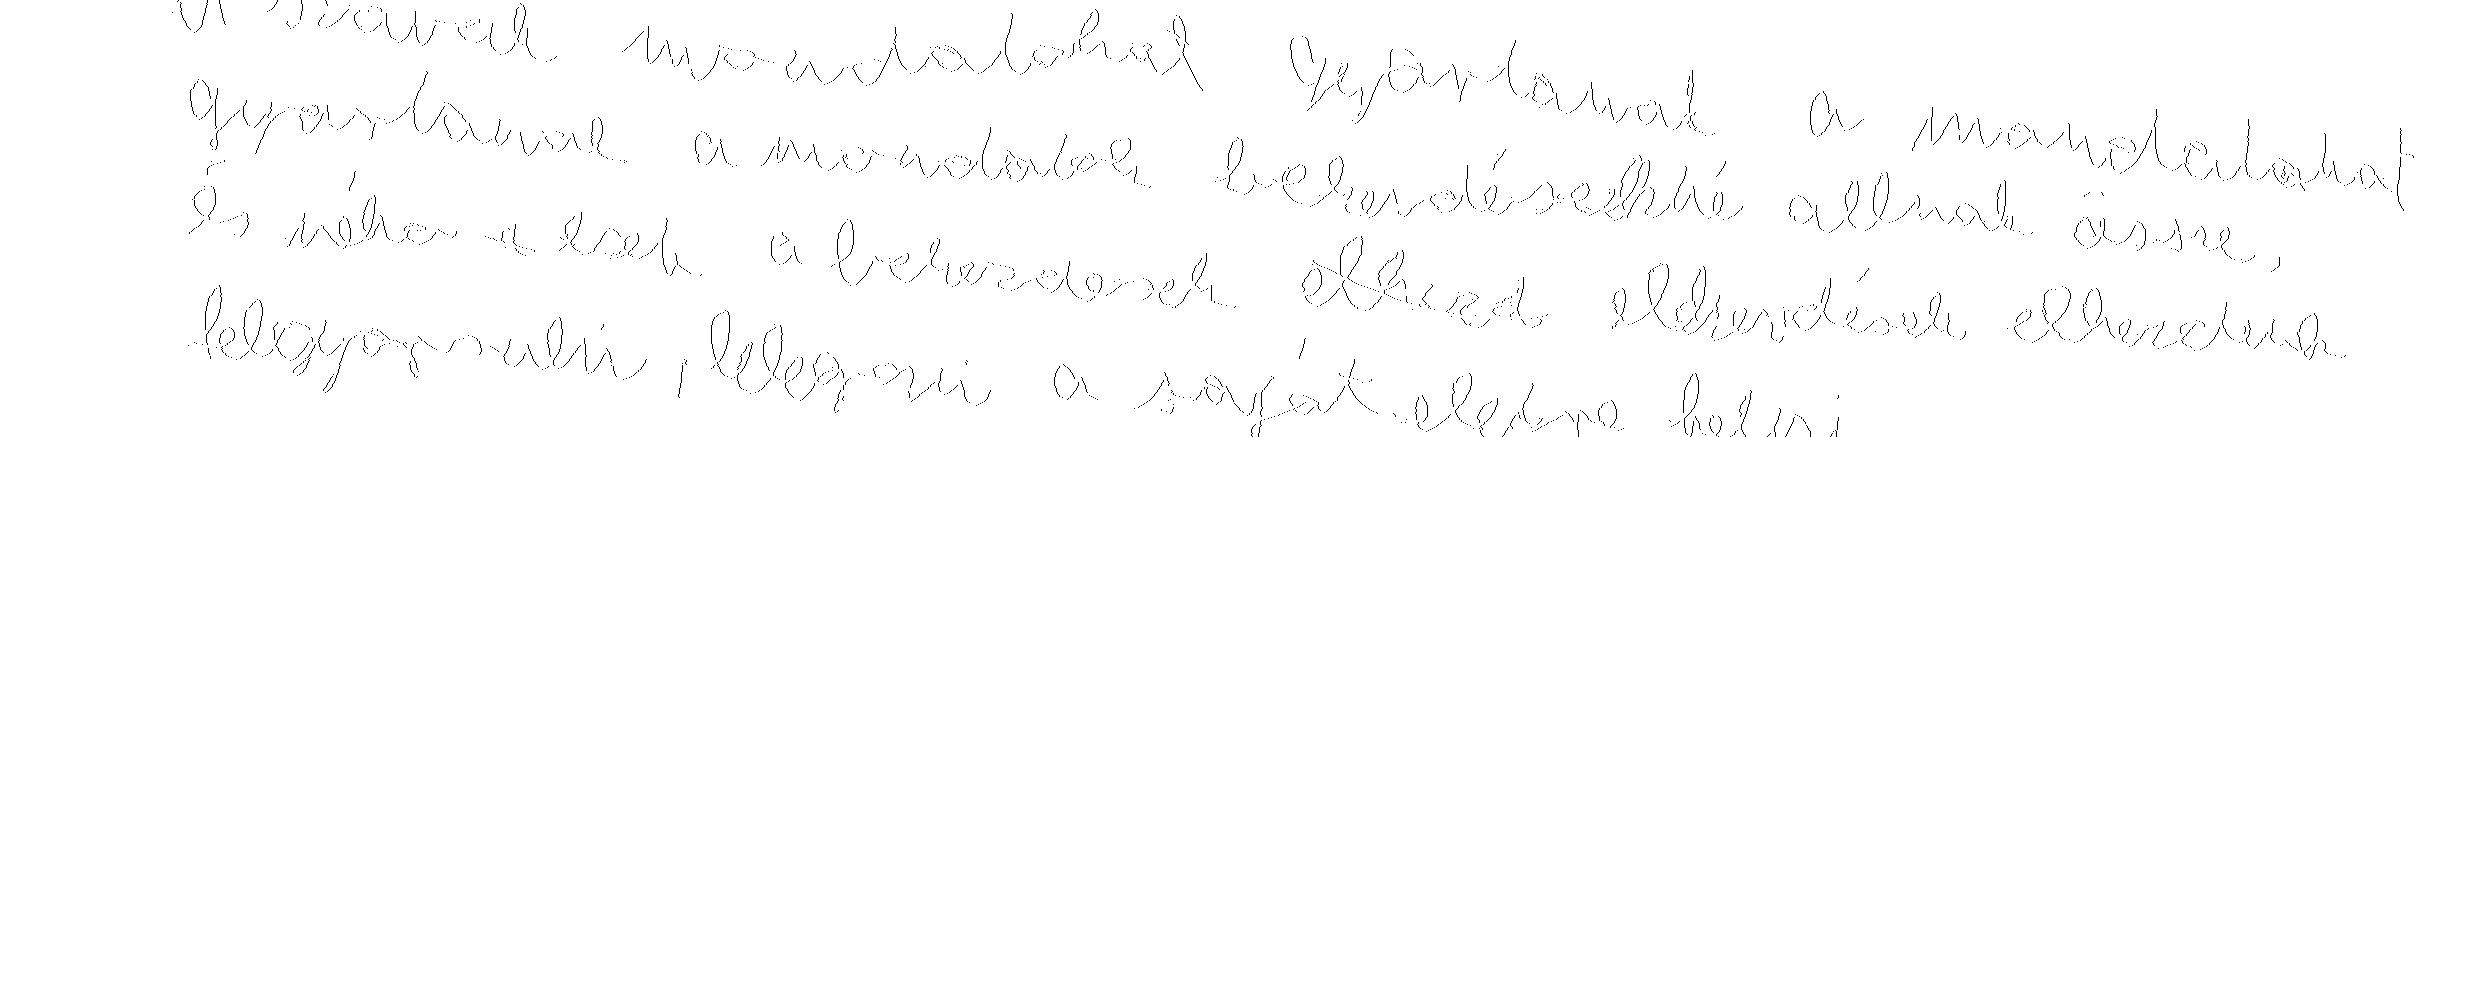 A szavak mondatokat gyártanak a mondatokat
gyártanak a mondatok bekezdésekké állnak össze,
És néha ezek a bekezdések elkezd elkezdések elkezdenek
lélegezni a saját életre kelni